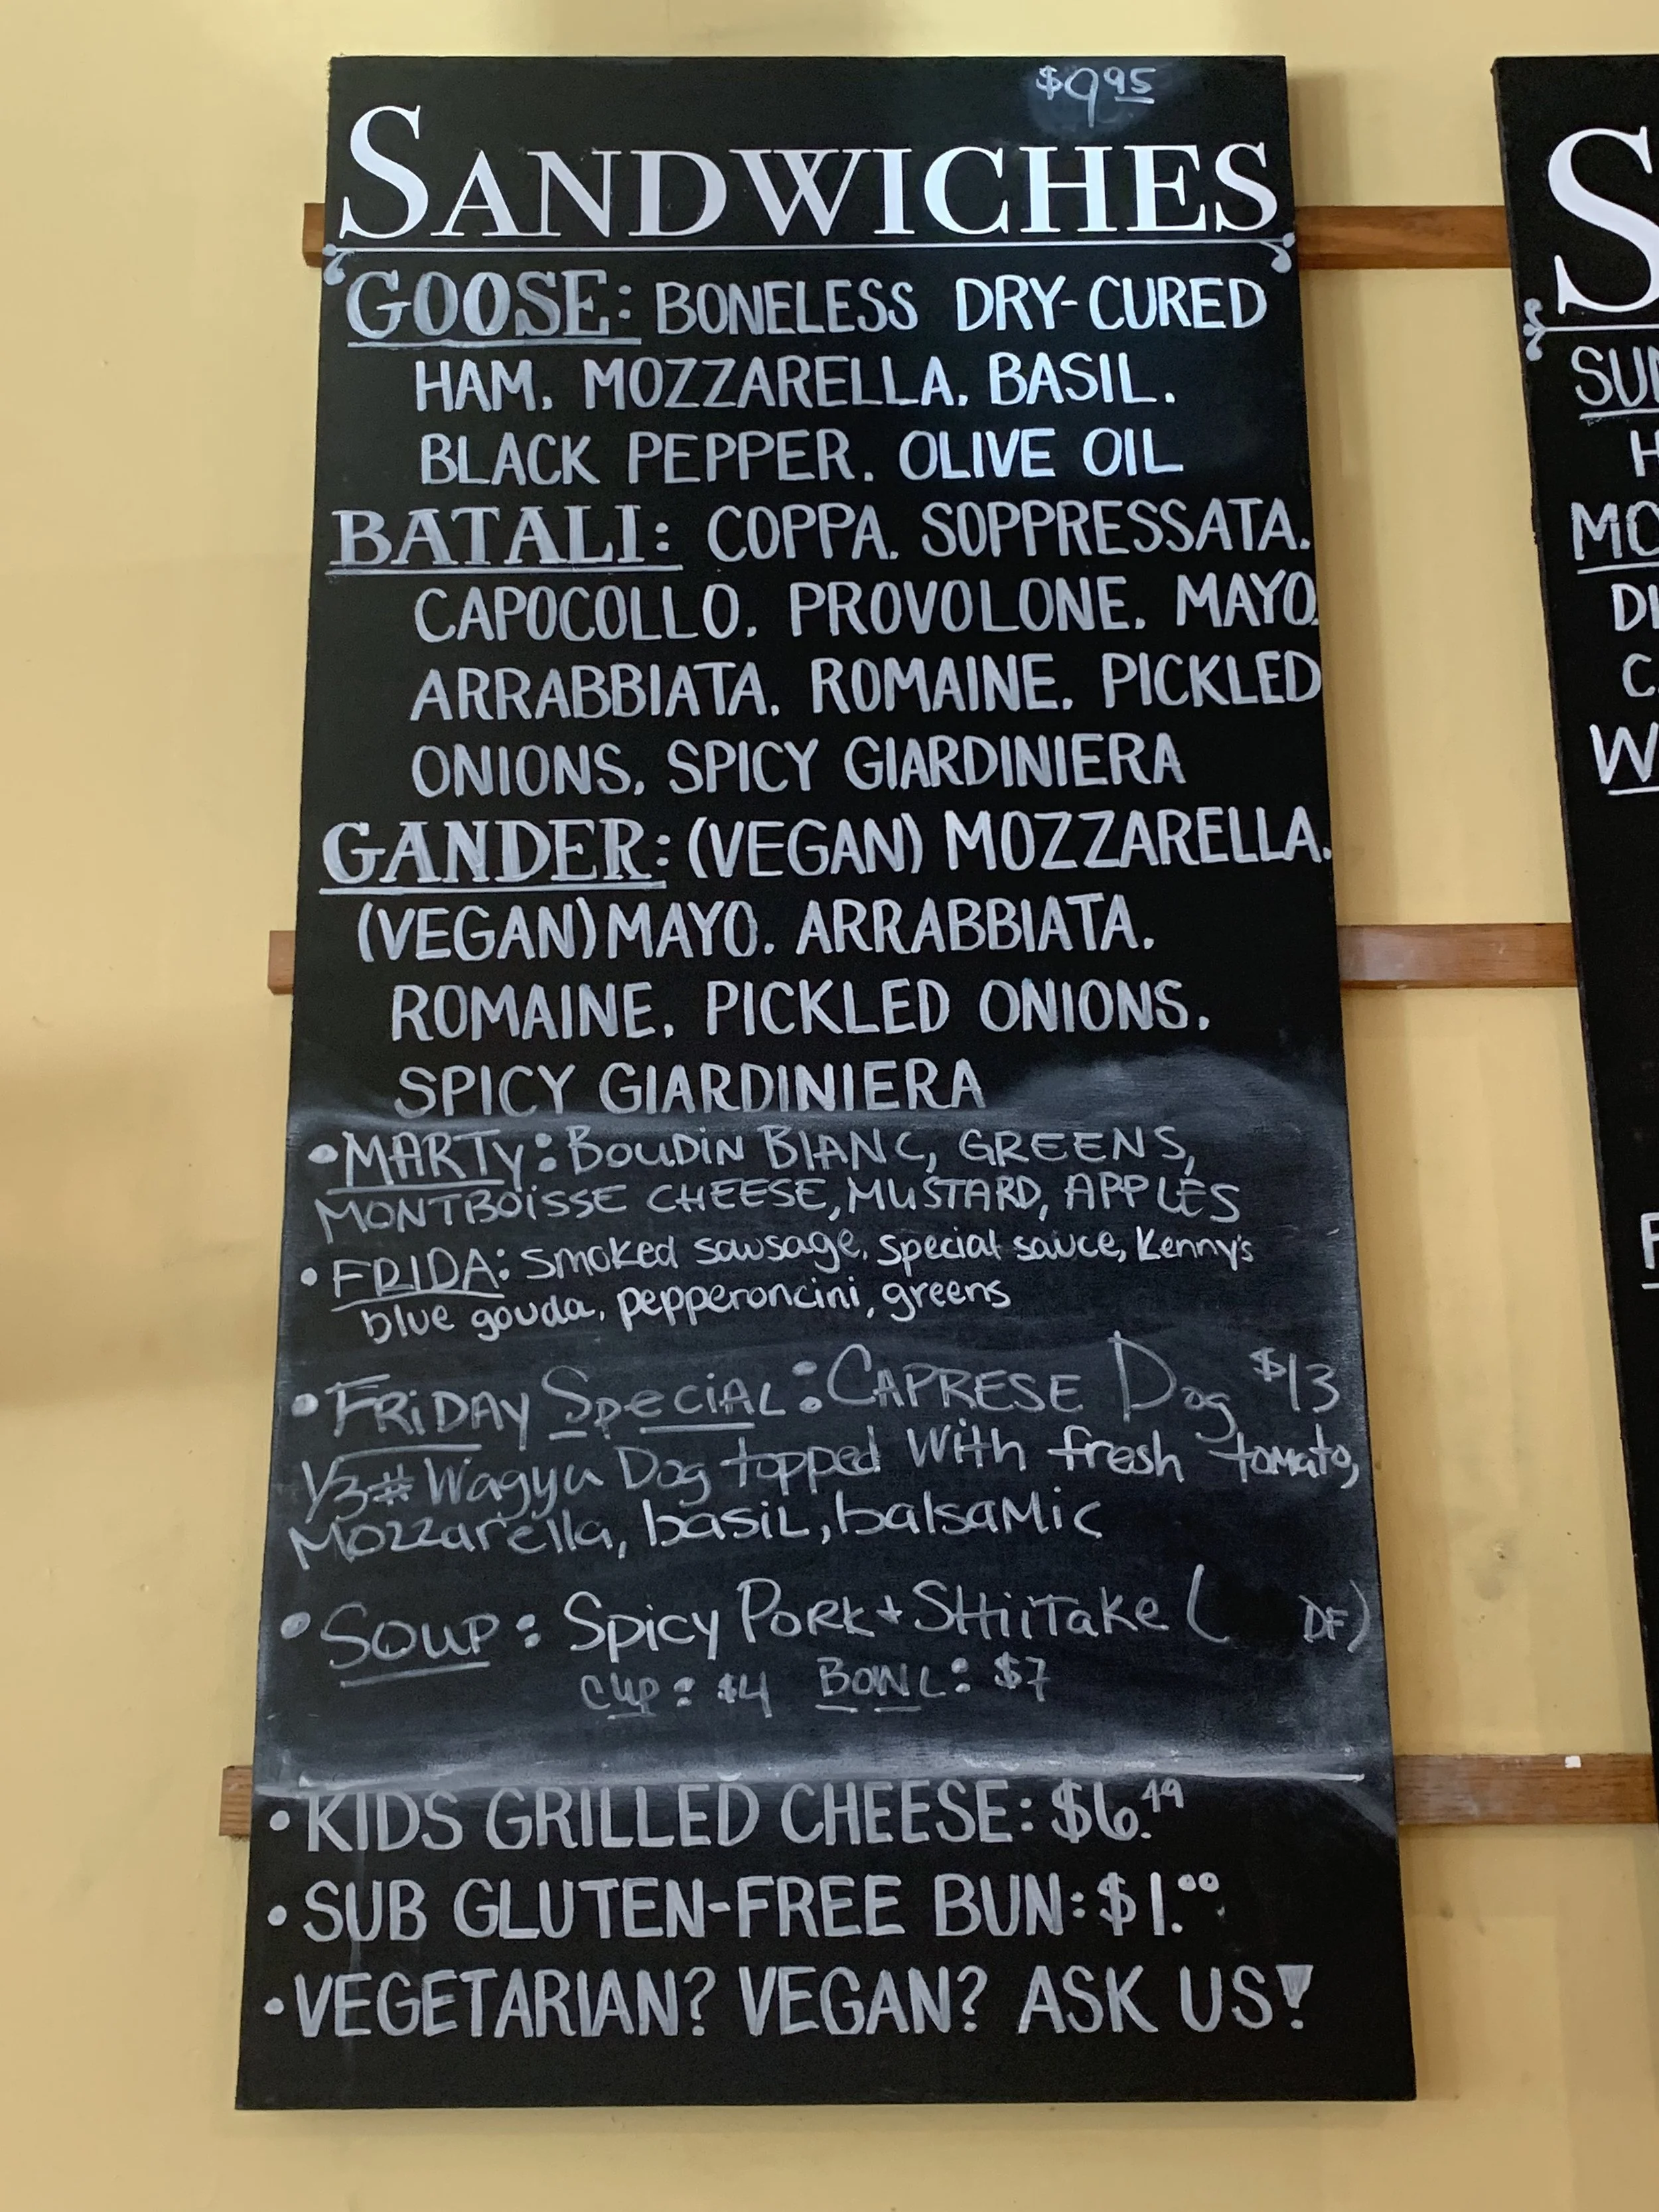 $9.95
SANDWICHES
GOOSE: BONELESS DRY-CURED
HAM. MOZZARELLA. BASIL.
BLACK PEPPER. OLIVE OIL
BATALI: COPPA. SOPPRESSATA.
CAPOCOLLO. PROVOLONE. MAYO.
ARRABBIATA. ROMAINE. PICKLED
ONIONS. SPICY GIARDINIERA
GANDER: (VEGAN) MOZZARELLA.
(VEGAN) MAYO. ARRABBIATA.
ROMAINE. PICKLED ONIONS.
SPICY GIARDINIERA
• MARTY: BOUDIN BLANC, GREENS,
MONTBOISSE CHEESE, MUSTARD, APPLES
• FRIDA: smoked sausage, special sauce, Kenny's
blue gouda, pepperoncini, greens
• FRIDAY SPECIAL: CAPRESE Dog $13
1/3# Wagyu Dog topped with fresh tomato,
Mozzarella, basil, balsamic
• SOUP: Spicy PORK + SHIITAKE ( DF)
CUP: $4 BOWL: $7
• KIDS GRILLED CHEESE: $6.49
• SUB GLUTEN-FREE BUN: $1.00
• VEGETARIAN? VEGAN? ASK US!
S
SU
H
MO
DI
C
W